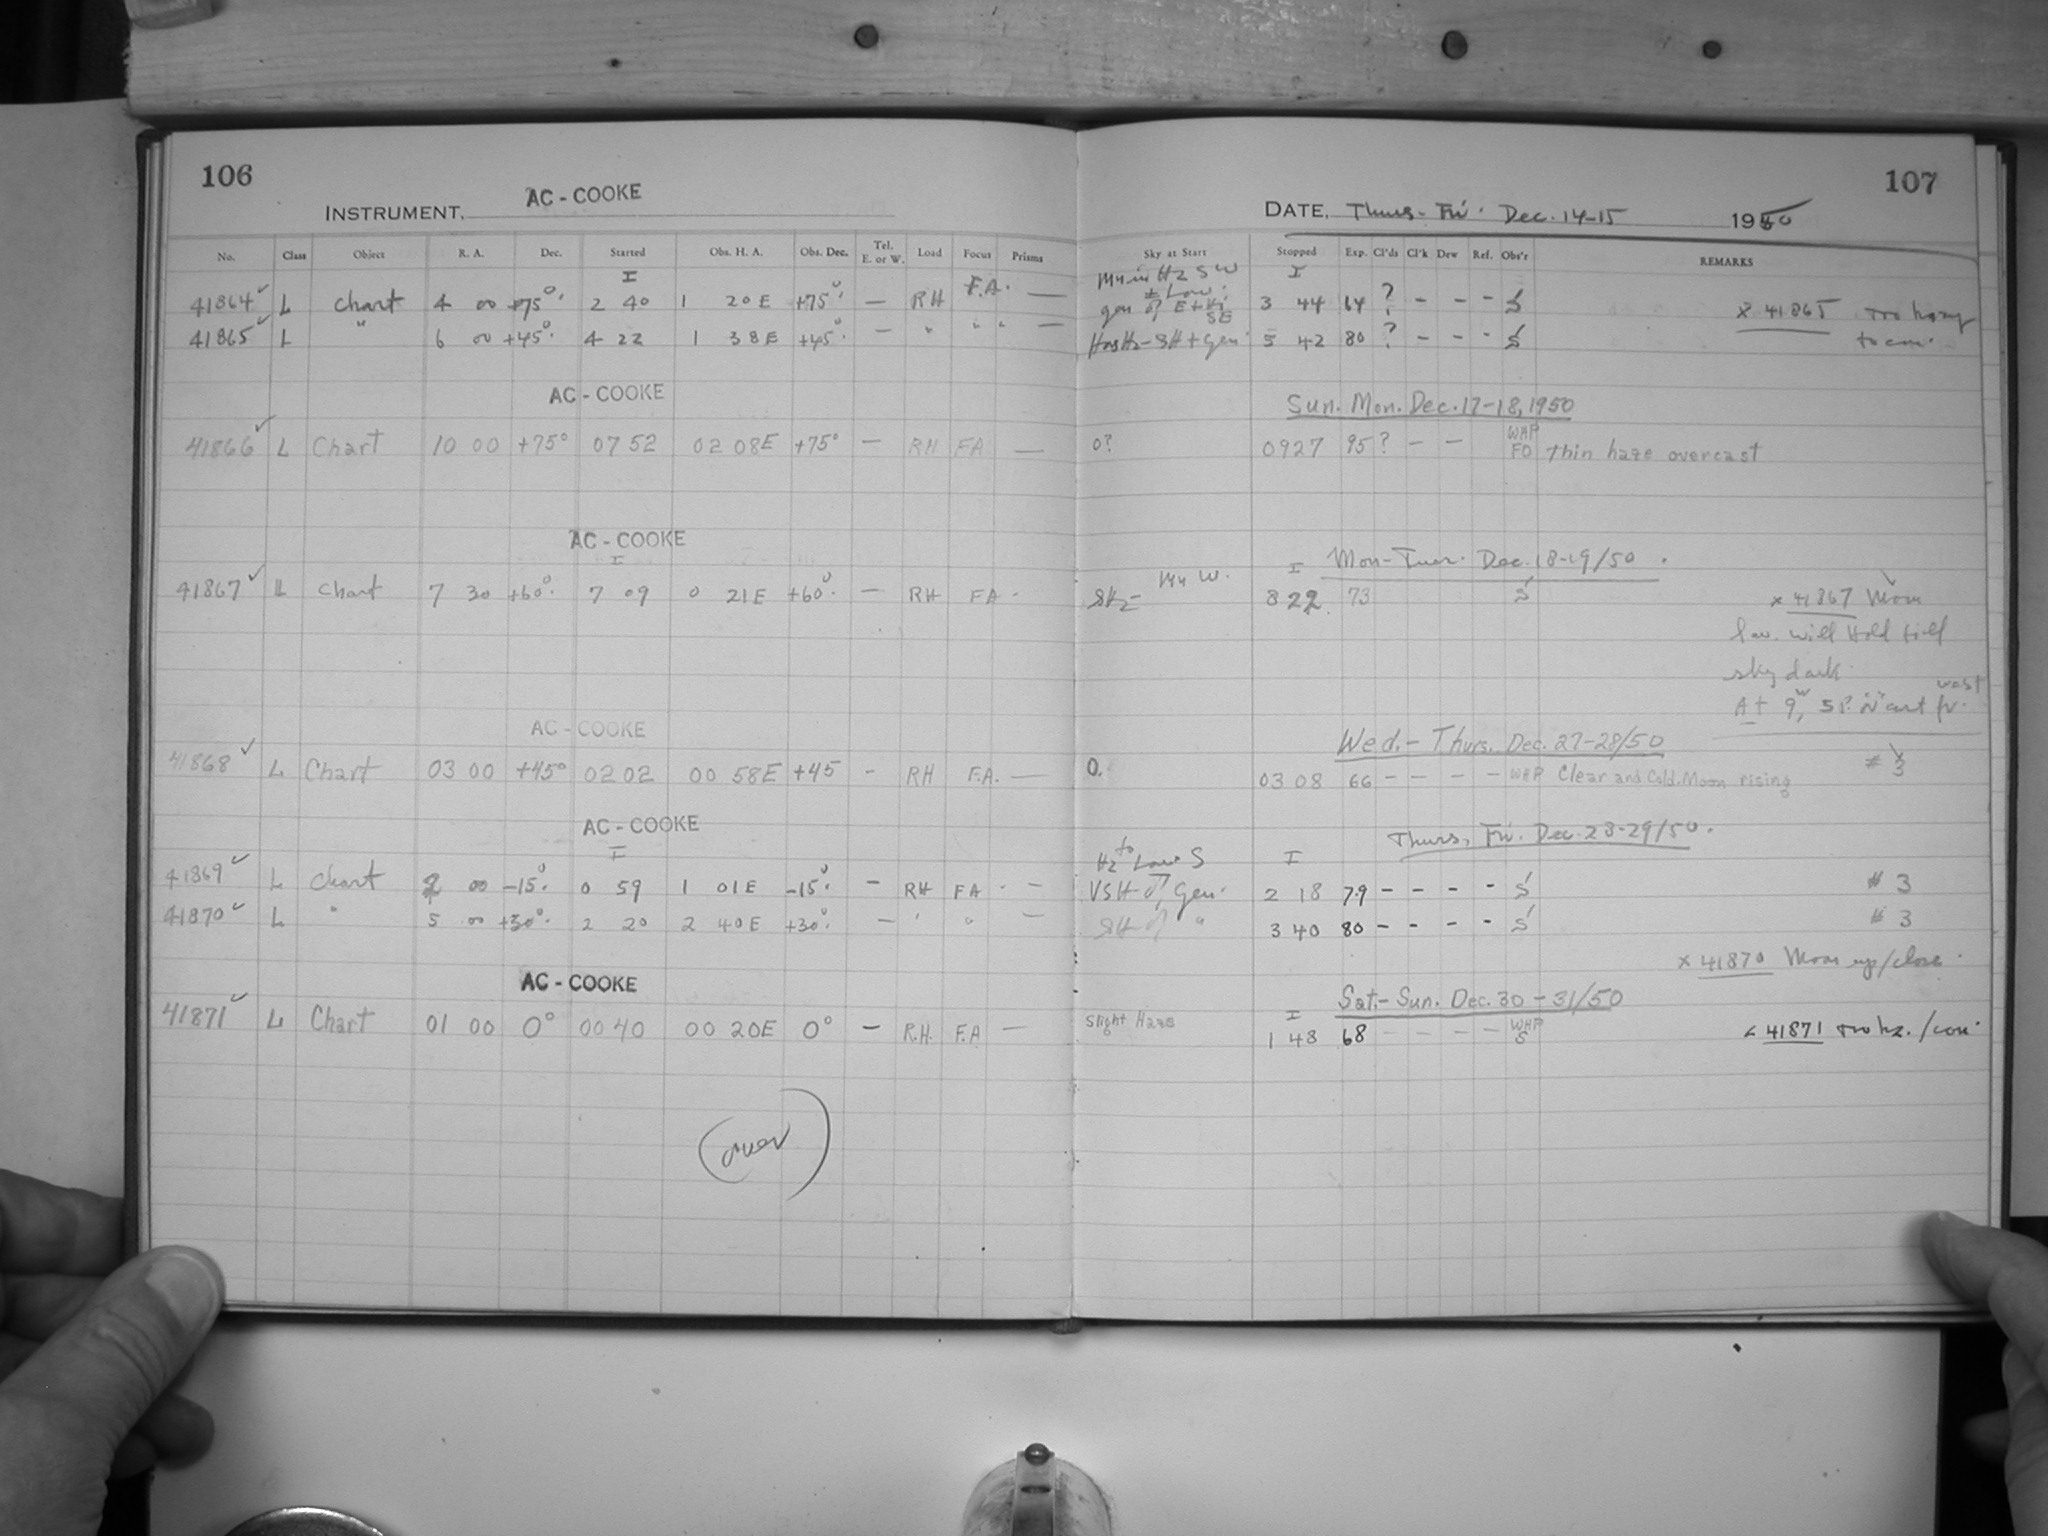 106
107
INSTRUMENT, AC - COOKE
DATE, Thurs. Fri. Dec. 14-15 1950
No. Class Object R. A. Dec. Started Obs. H. A. Obs. Dec. Tel. E. or W. Load Focus Prisms Sky at Start Stopped Exp. Cl'ds Cl'k Dew Ref. Obs'r REMARKS
I SW I
41864 ✓ L Chart 4 00 +75°. 2 40 1 20 E +75°. — RH F.A. — 3 44 64 ? - - - S x 41865 Too hazy
41865 ✓ L " 6 00 +45°. 4 22 1 38 E +45°. — " " " — 5 42 80 ? - - - S to con.
AC - COOKE Sun. Mon. Dec. 17-18, 1950
41866 ✓ L Chart 10 00 +75° 07 52 02 08E +75° — RH FA — 0? 0927 95 ? - - WHP FO Thin haze overcast
AC - COOKE Mon-Tues. Dec. 18-19/50.
I I
41867 ✓ L Chart 7 30 +60°. 7 09 0 21E +60°. — RH FA. 8 22 73 S x 41867 Moon
low. will Hold till
sky dark.
AC - COOKE Wed. - Thurs. Dec. 27-28/50
41868 ✓ L Chart 03 00 +45° 02 02 00 58E +45 - RH F.A. — 0. 03 08 66 - - - - WHP Clear and Cold. Moon rising # 3
AC - COOKE Thurs, Fri. Dec. 28-29/50.
I Hz to Low S I
41869 ✓ L Chart 2 00 -15°. 0 59 1 01E -15°. - RH FA. - VSH Gen. 2 18 79 - - - - S # 3
41870 ✓ L " 5 00 +30°. 2 20 2 40E +30°. - " " - SH " 3 40 80 - - - - S # 3
x 41870 Moon up/close.
AC - COOKE Sat. - Sun. Dec. 30 - 31/50
I
41871 ✓ L Chart 01 00 0° 00 40 00 20E 0° - R.H. F.A — Slight Haze 1 48 68 - - - - WHP S 41871 Too hz./con.
(over)